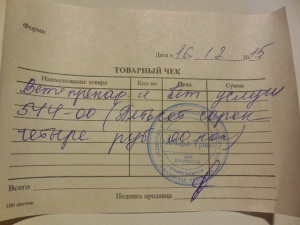 Форма:
Дата « 16 . 12 » 2015
ТОВАРНЫЙ ЧЕК
Наименование товара Кол-во Цена Сумма
Ветпрепар и вет услуги
544-00 (Пятьсот сорок
четыре руб 00 коп)
Всего
Подпись продавца
100 листов